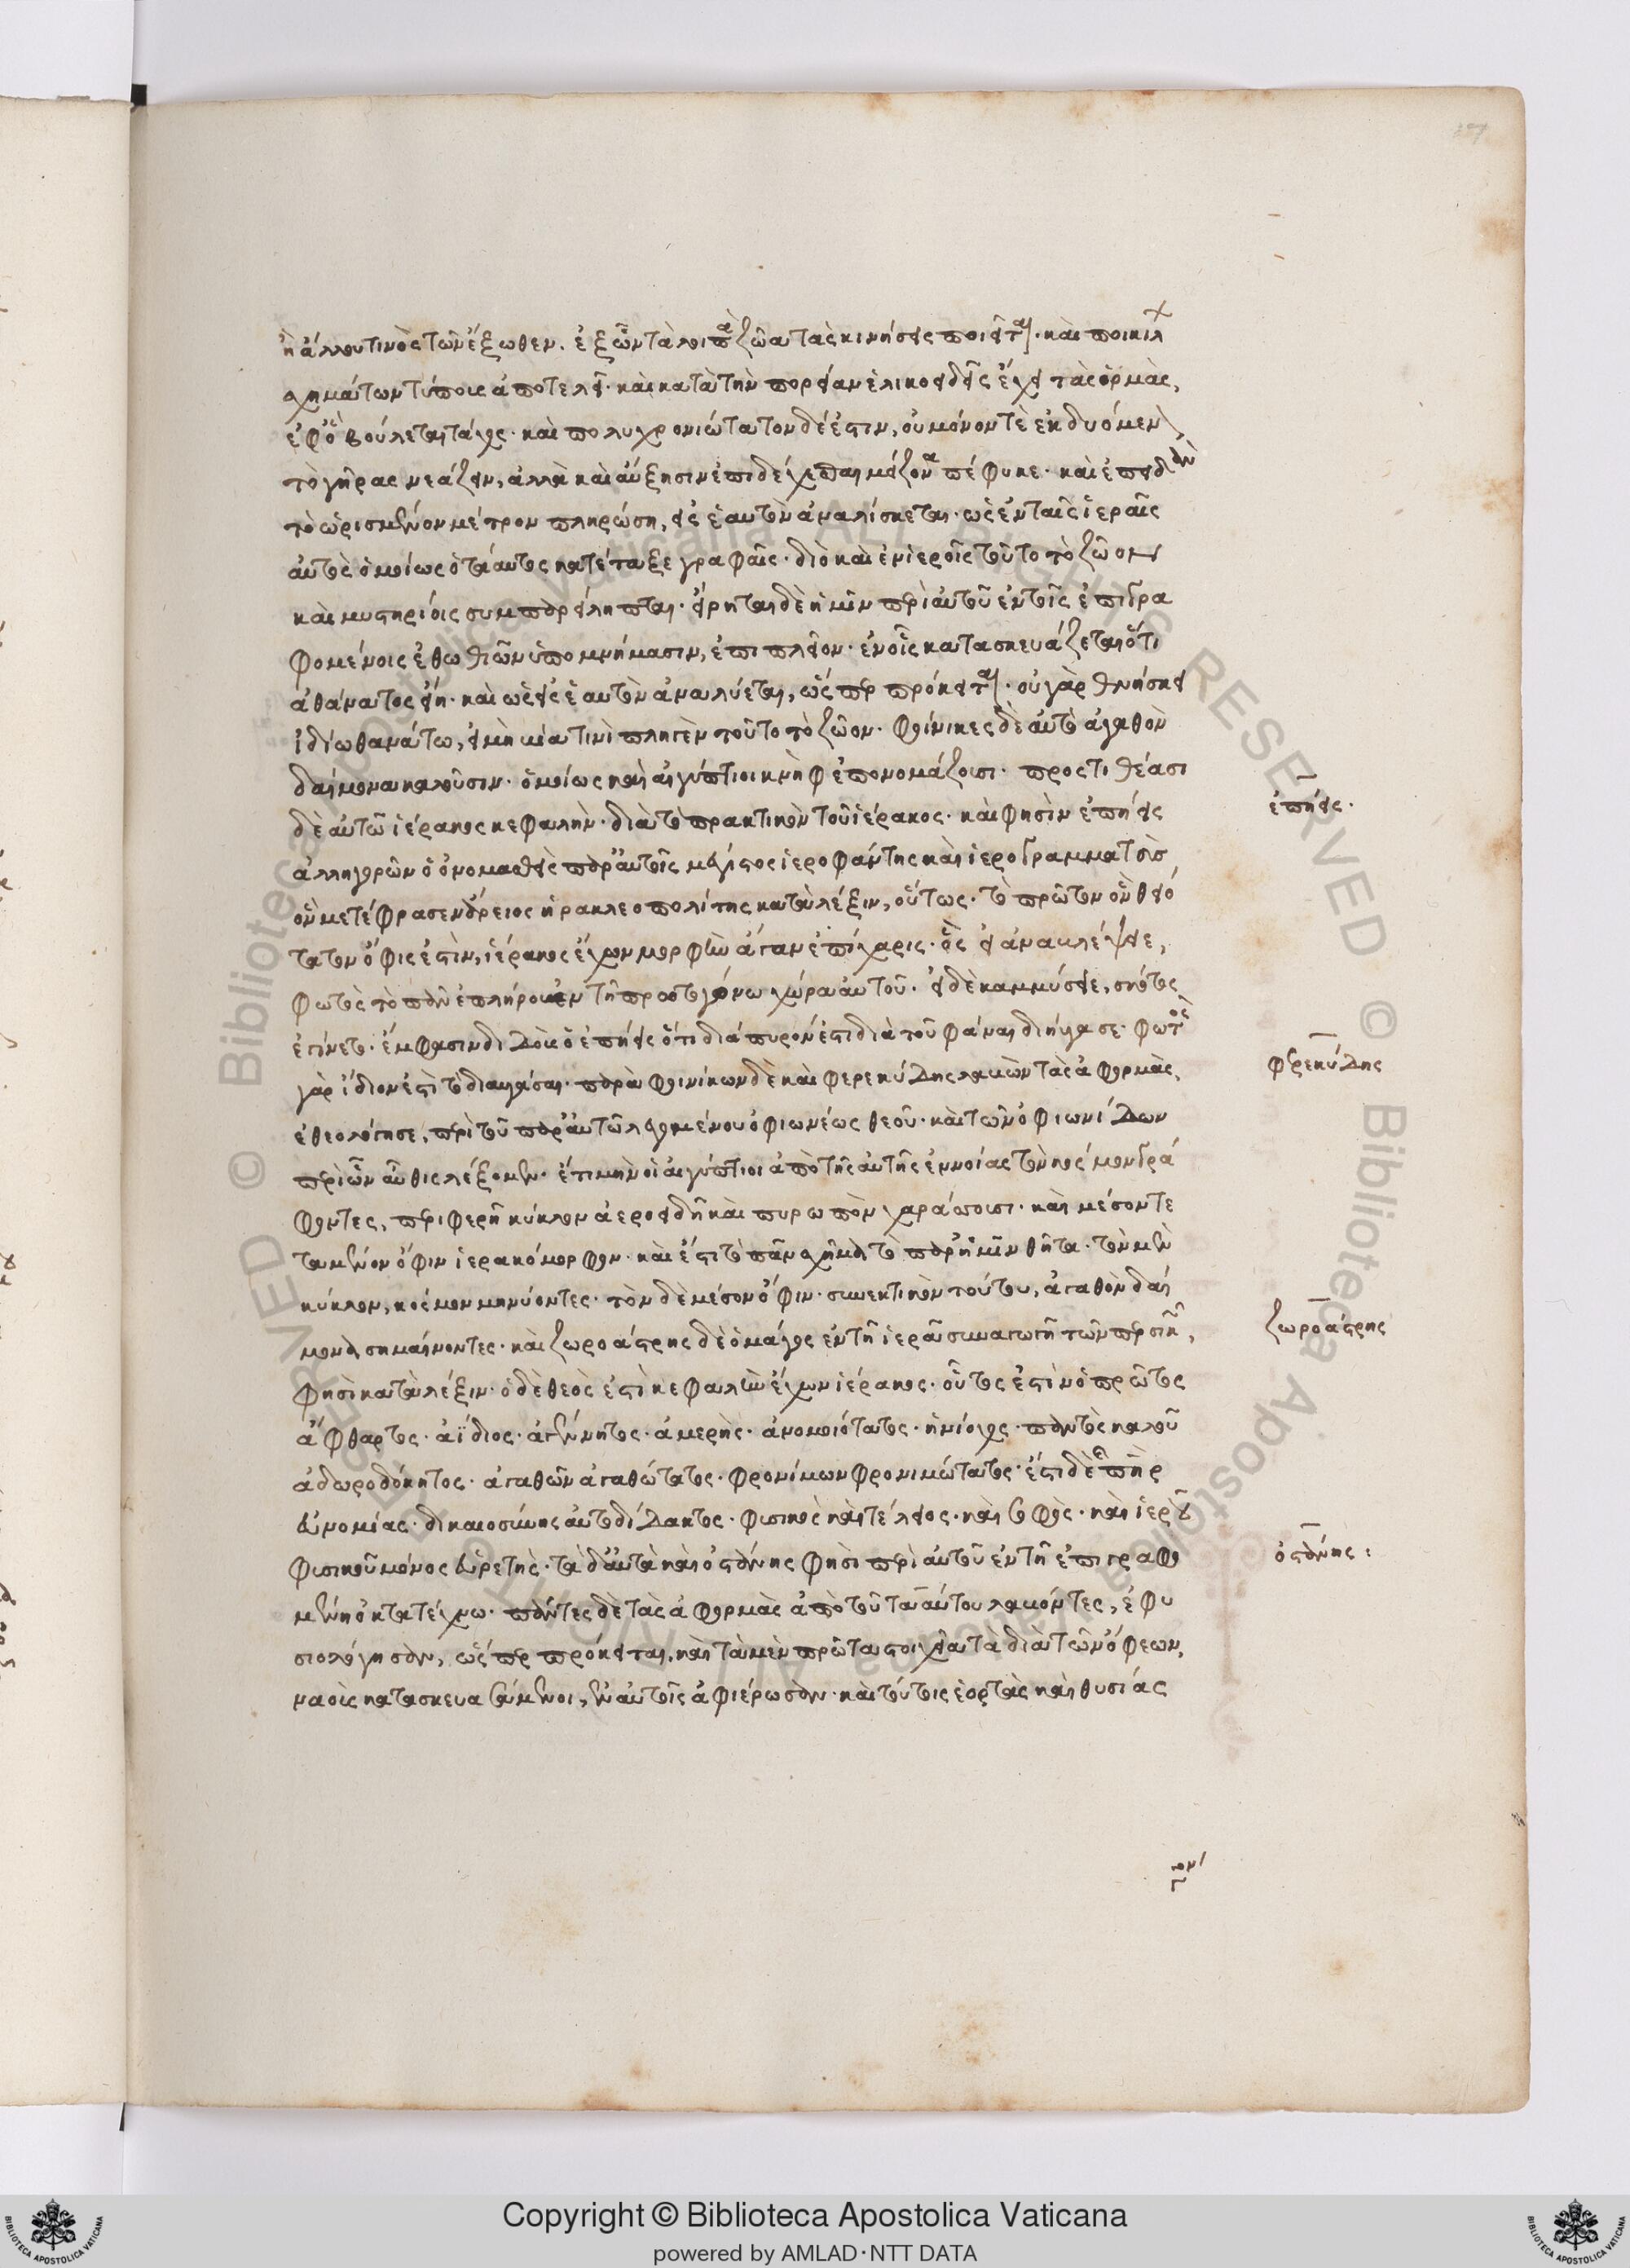 ἢ ἄλλου τινὸς τῶν ἔξωθεν. ἐξ ὧν τὰ λοιπὰ ζῶα τὰς κινήσεις ποιεῖται· καὶ ποικίλ
σχημάτων τύπους ἀποτελεῖ· καὶ κατὰ τὴν πορείαν ἑλικοειδεῖς ἔχει τὰς ὁρμὰς,
ἐφ' ὃ βούλεται τάχος· καὶ πολυχρονιώτατον δέ ἐστιν, οὐ μόνον τὲ ἐκδυόμεν
τὸ γῆρας νεάζειν, ἀλλὰ καὶ αὔξησιν ἐπιδέχεσθαι μείζονα πέφυκε· καὶ ἐπειδὰν
τὸ ὡρισμένον μέτρον πληρώση, εἰς ἑαυτὸν ἀναλίσκεται· ὡς ἐν ταῖς ἱεραῖς
αὐτὸς ὁμοίως ὁ τάαυτος κατέταξε γραφαῖς· διὸ καὶ ἐν ἱεροῖς τοῦτο τὸ ζῶον
καὶ μυστηρίοις συμπαρείληπται· εἴρηται δὲ ἡμῖν περὶ αὐτοῦ ἐν τοῖς ἐπιγρα
φομένοις ἐθωθιῶν ὑπομνήμασιν, ἐπιπλεῖον· ἐν οἷς κατασκευάζεται ὅτι
ἀθάνατος εἴη· καὶ ὡς εἰς ἑαυτὸν ἀναλύεται, ὥσπερ πρόκειται· οὐ γὰρ θνήσκει
ἰδίω θανάτω, εἰ μὴ βία τινὶ πληγὲν τοῦτο τὸ ζῶον· φοίνικες δὲ αὐτὸ ἀγαθὸν
δαίμονα καλοῦσιν· ὁμοίως καὶ αἰγύπτιοι κνὴφ ἐπονομάζουσι· προστιθέασι
δὲ αὐτῶ ἱέρακος κεφαλὴν· διὰ τὸ πρακτικὸν τοῦ ἱέρακος· καὶ φησὶν ἐπήεις
ἀλληγορῶν ὁ ὀνομασθεὶς παρ' αὐτοῖς μέγιστος ἱεροφάντης καὶ ἱερογραμματεὺς
ὃν μετέφρασεν ἄρειος ἡρακλεοπολίτης κατὰ λέξιν, οὕτως· τὸ πρῶτον ὂν θειό
τατον ὄφις ἐστὶν, ἱέρακος ἔχων μορφὴν ἄγαν ἐπίχαρις· ὃς εἰ ἀναβλέψειε,
φωτὸς τὸ πᾶν ἐπλήρου ἐν τῆ πρωτογόνω χώρα αὐτοῦ· εἰ δὲ καμμύσειε, σκότος
ἐγίνετο· ἔμφασιν διδοὺς ὁ ἐπήεις ὅτι διάπυρόν ἐστι διὰ τοῦ φάναι διηύγασε· φωτὸς
γὰρ ἴδιον ἐστὶ τὸ διαυγάσαι· παρὰ φοινίκων δὲ καὶ φερεκύδης λαβὼν τὰς ἀφορμὰς,
ἐθεολόγησε, περὶ τοῦ παρ' αὐτῶ λεγομένου ὀφιωνέως θεοῦ· καὶ τῶν ὀφιωνίδων
περὶ ὧν αὖθις λέξομεν· ἔτι μὴν οἱ αἰγύπτιοι ἀπὸ τῆς αὐτῆς ἐννοίας τὸν κόσμον γρά
φοντες, περιφερῆ κύκλον ἀεροειδῆ καὶ πυρωπὸν χαράσσουσι· καὶ μέσον τε
ταμένον ὄφιν ἱερακόμορφον· καὶ ἔστι τὸ πᾶν σχῆμα τὸ παρ' ἡμῖν θῆτα· τὸν μὲν
κύκλον, κόσμον μηνύοντες· τὸν δὲ μέσον ὄφιν· συνεκτικὸν τούτου, ἀγαθὸν δαί
μονα σημαίνοντες· καὶ ζωροάστρης δὲ ὁ μάγος ἐν τῆ ἱερᾶ συναγωγῆ τῶν περσικῶν,
φησὶ κατὰ λέξιν· ὁ δὲ θεὸς ἐστὶ κεφαλὴν ἔχων ἱέρακος· οὗτος ἐστὶν ὁ πρῶτος
ἄφθαρτος· ἀΐδιος· ἀγένητος· ἀμερὴς· ἀνομοιότατος· ἡνίοχος· παντὸς καλοῦ
ἀδωροδόκητος· ἀγαθῶν ἀγαθώτατος· φρονίμων φρονιμώτατος· ἔστι δὲ καὶ πατὴρ
εὐνομίας· δικαιοσύνης αὐτοδίδακτος· φυσικὸς καὶ τέλειος· καὶ σοφὸς· καὶ ἱεροῦ
φυσικοῦ μόνος εὑρετὴς· τὰ δ' αὐτὰ καὶ ὀστάνης φησὶ περὶ αὐτοῦ ἐν τῆ ἐπιγραφο
μένη ὀκτατεύχω· πάντες δὲ τὰς ἀφορμὰς ἀπὸ τοῦ τααύτου λαβόντες, ἐφυ
σιολόγησαν, ὥσπερ πρόκειται. καὶ τὰ μὲν πρῶτα στοιχεῖα τὰ διὰ τῶν ὄφεων,
ναοὺς κατασκευασάμενοι, ἐν αὐτοῖς ἀφιέρωσαν· καὶ τούτοις ἑορτὰς καὶ θυσίας
ἐπήεις.
φερεκύδης
ζωροάστρης
ὀστάνης:
Copyright © Biblioteca Apostolica Vaticana
powered by AMLAD·NTT DATA